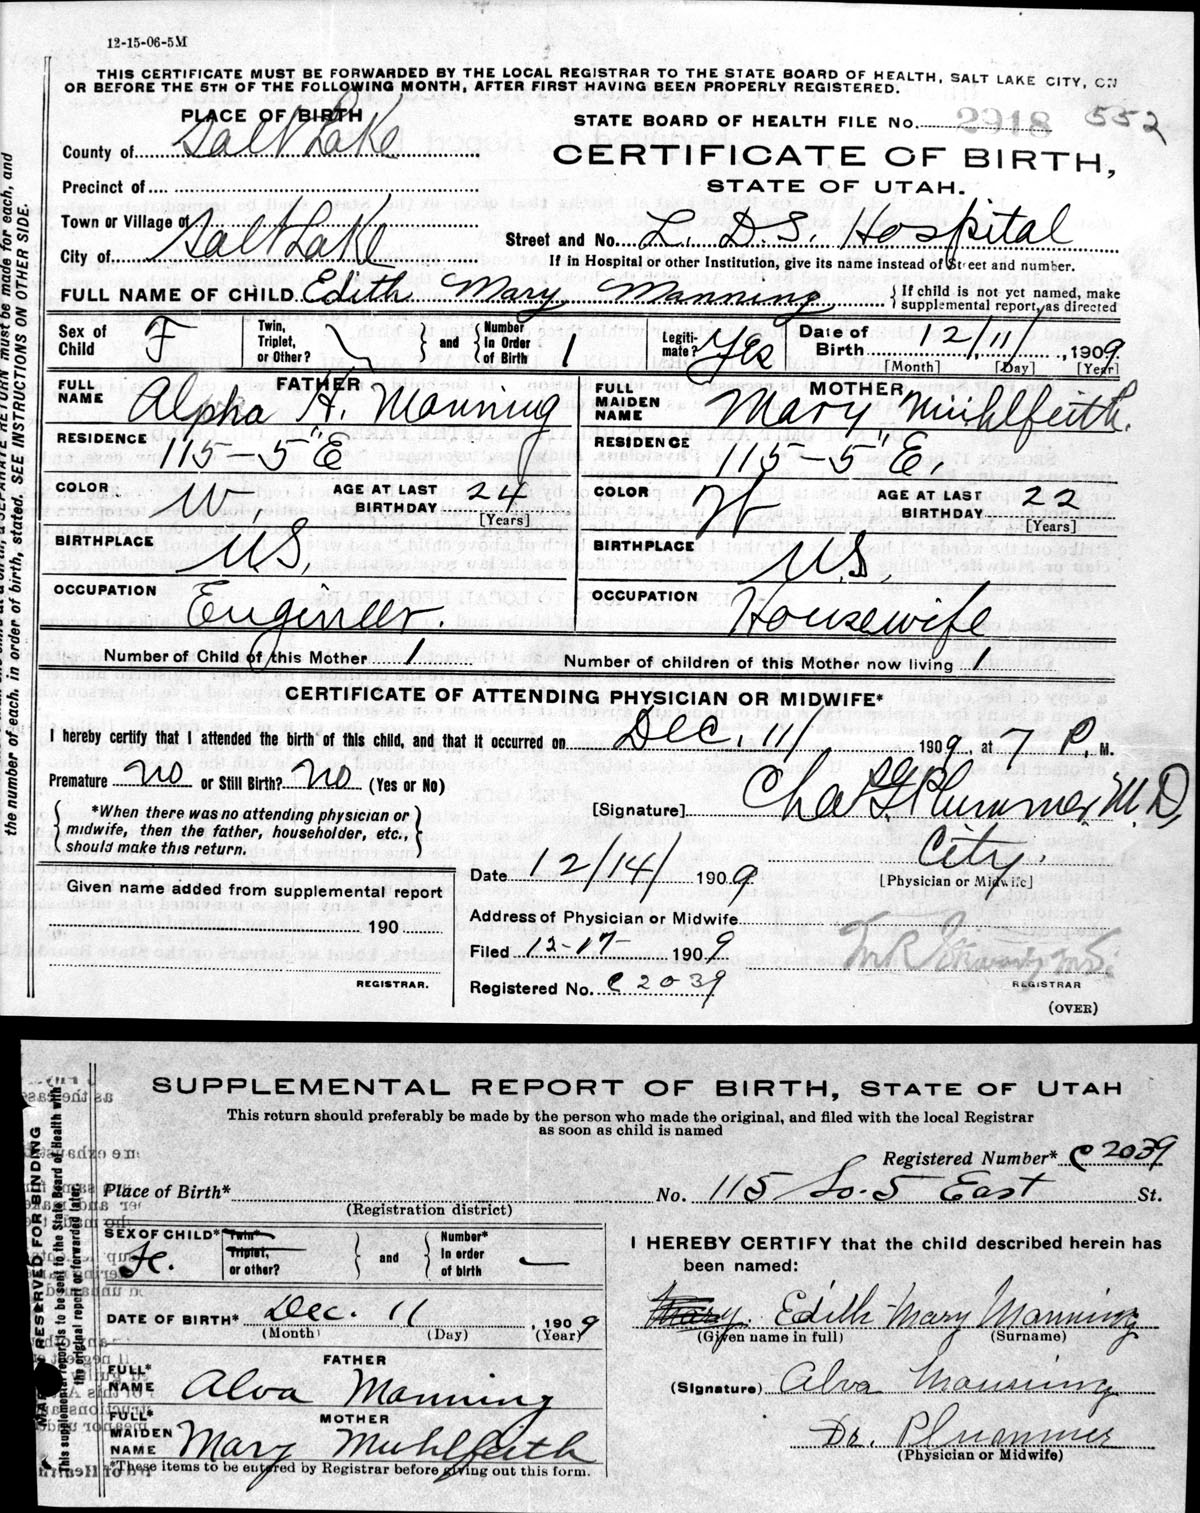 12-15-06-5M
THIS CERTIFICATE MUST BE FORWARDED BY THE LOCAL REGISTRAR TO THE STATE BOARD OF HEALTH, SALT LAKE CITY, ON
OR BEFORE THE 5TH OF THE FOLLOWING MONTH, AFTER FIRST HAVING BEEN PROPERLY REGISTERED.
PLACE OF BIRTH
County of Salt Lake
Precinct of
Town or Village of
City of Salt Lake
STATE BOARD OF HEALTH FILE No. 2918 552
CERTIFICATE OF BIRTH,
STATE OF UTAH.
Street and No. L. D. S. Hospital
If in Hospital or other Institution, give its name instead of Street and number.
FULL NAME OF CHILD Edith Mary Manning { If child is not yet named, make
supplemental report, as directed
Sex of Child F Twin, Triplet, or Other? } and { Number In Order of Birth 1 Legitimate? Yes Date of Birth 12/11/, 1909
[Month] [Day] [Year]
FATHER
FULL NAME Alpha H. Manning
RESIDENCE 115-5" E
COLOR W. AGE AT LAST BIRTHDAY 24
[Years]
BIRTHPLACE U.S.
OCCUPATION Engineer.
MOTHER
FULL MAIDEN NAME Mary Muhlfeith.
RESIDENCE 115-5" E.
COLOR W AGE AT LAST BIRTHDAY 22
[Years]
BIRTHPLACE U.S.
OCCUPATION Housewife
Number of Child of this Mother 1 Number of children of this Mother now living 1
CERTIFICATE OF ATTENDING PHYSICIAN OR MIDWIFE*
I hereby certify that I attended the birth of this child, and that it occurred on Dec. 11/ 1909, at 7 P. M.
Premature no or Still Birth? no (Yes or No)
{ *When there was no attending physician or
midwife, then the father, householder, etc.,
should make this return. }
[Signature] Chas G Plummer M.D.
City.
[Physician or Midwife]
Date 12/14/ 1909
Given name added from supplemental report
190
REGISTRAR.
Address of Physician or Midwife
Filed 12-17- 1909
Registered No. C2039
REGISTRAR
(OVER)
the number of each, in order of birth, stated. SEE INSTRUCTIONS ON OTHER SIDE.
SUPPLEMENTAL REPORT OF BIRTH, STATE OF UTAH
This return should preferably be made by the person who made the original, and filed with the local Registrar
as soon as child is named
Registered Number* C2039
Place of Birth* No. 115 So. 5 East St.
(Registration district)
SEX OF CHILD* Fe. Twin* Triplet, or other? } and { Number* In order of birth
DATE OF BIRTH* Dec. 11, 1909
(Month) (Day) (Year)
FATHER
FULL* NAME Alva Manning
MOTHER
FULL* MAIDEN NAME Mary Muhlfeith
*These items to be entered by Registrar before giving out this form.
I HEREBY CERTIFY that the child described herein has
been named:
Mary. Edith Mary Manning
(Given name in full) (Surname)
(Signature) Alva Manning
Dr. Plummer
(Physician or Midwife)
RESERVED FOR BINDING
This supplemental report is to be sent to the State Board of Health with
the original report or forwarded later.